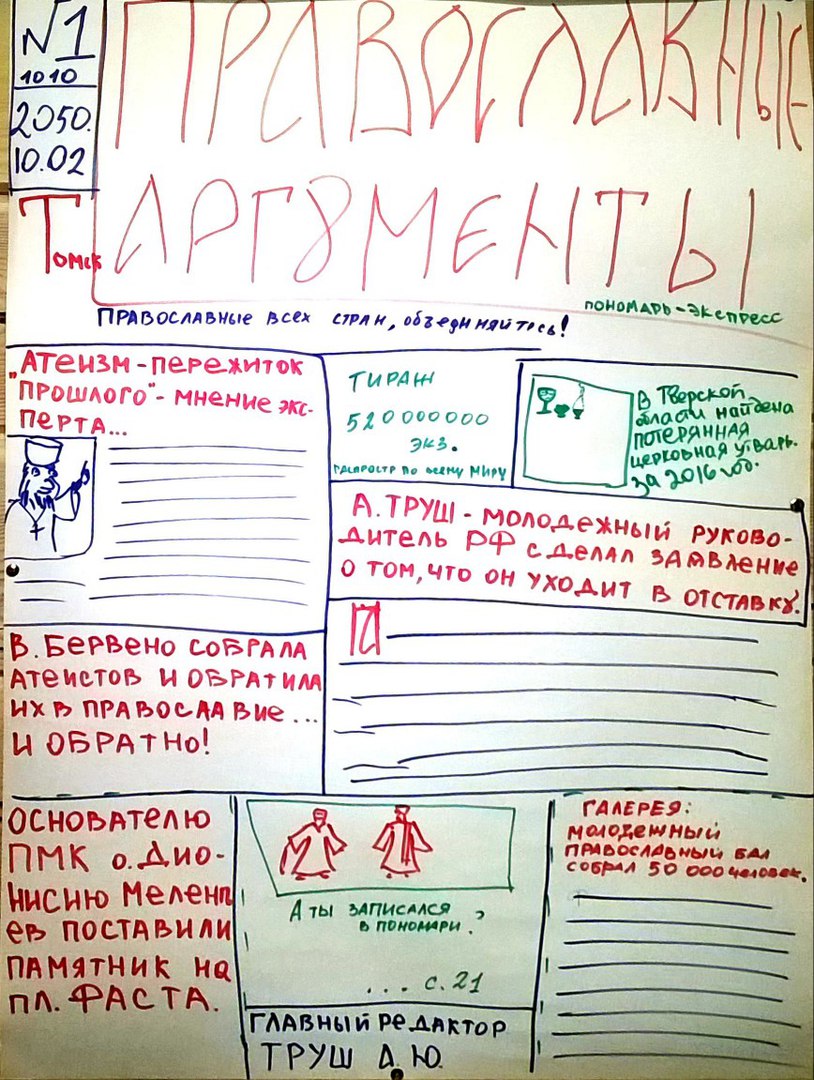 №1
1010
2050.
10.02
Томск
ПРАВОСЛАВНЫЕ
АРГУМЕНТЫ
ПОНОМАРЬ-ЭКСПРЕСС
ПРАВОСЛАВНЫЕ ВСЕХ СТРАН, объединяйтесь!
„АТЕИЗМ-ПЕРЕЖИТОК
ПРОШЛОГО"- МНЕНИЕ ЭКС-
ПЕРТА...
ТИРАЖ
520000000
ЭКЗ.
РАСПРОСТР ПО ВСЕМУ МИРУ
В Тверской
области найдена
ПОТЕРЯННАЯ
церковная утварь
за 2016 год.
А.ТРУШ - МОЛОДЕЖНЫЙ РУКОВО-
ДИТЕЛЬ РФ СДЕЛАЛ ЗАЯВЛЕНИЕ
О ТОМ, ЧТО ОН УХОДИТ В ОТСТАВКУ.
В. БЕРВЕНО СОБРАЛА
АТЕИСТОВ И ОБРАТИЛА
ИХ В ПРАВОСЛАВИЕ...
И ОБРАТНО!
ОСНОВАТЕЛЮ
ПМК о. Дио-
НИСИЮ Мелент
ЕВ ПОСТАВИЛИ
ПАМЯТНИК НА
ПЛ. ФАСТА.
А ТЫ ЗАПИСАЛСЯ
В ПОНОМАРИ?
... с. 21
ГЛАВНЫЙ РЕДАКТОР
ТРУШ А.Ю.
ГАЛЕРЕЯ:
МОЛОДЕЖНЫЙ
ПРАВОСЛАВНЫЙ БАЛ
СОБРАЛ 50 000 человек.